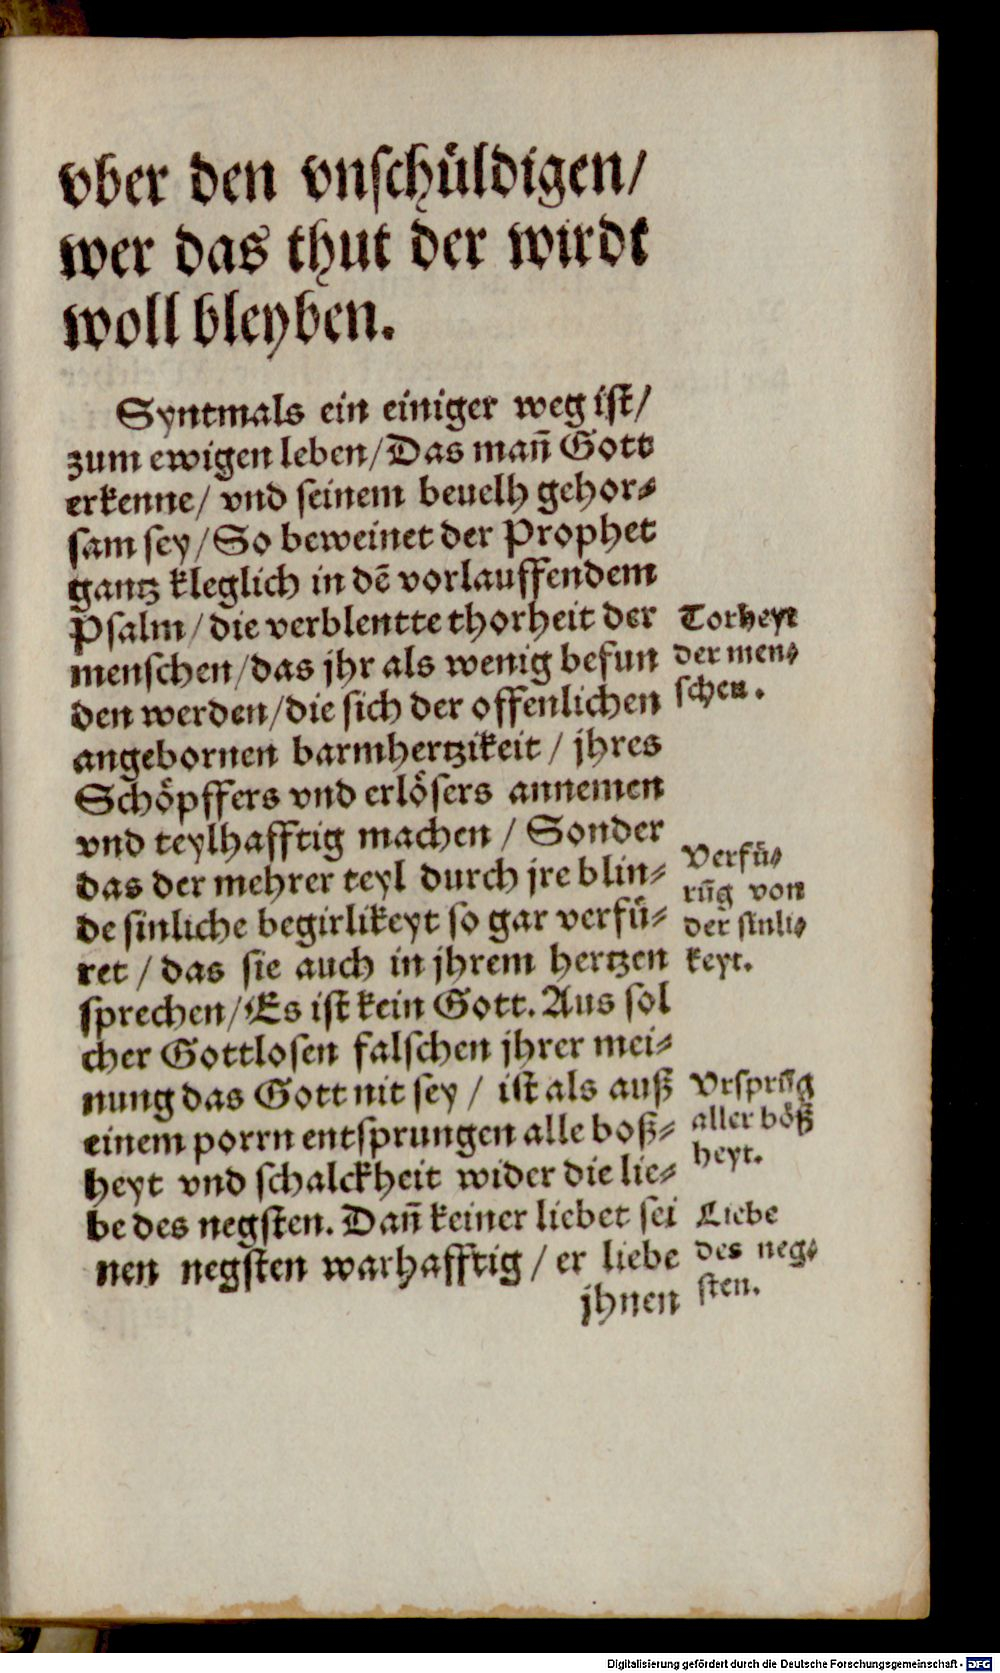 vber den vnschüldigen/
wer das thut der wirdt
woll bleyben.
Syntmals ein einiger weg ist/
zum ewigen leben/Das man̄ Gott
erkenne/ vnd seinem beuelh gehor⸗
sam sey/So beweinet der Prophet
gantz kleglich in dē vorlauffendem
Psalm/die verblentte thorheit der
menschen/das jhr als wenig befun
den werden/die sich der offenlichen
angebornen barmhertzikeit / jhres
Schöpffers vnd erlösers annemen
vnd teylhafftig machen / Sonder
das der mehrer teyl durch jre blin⸗
de sinliche begirlikeyt so gar verfü⸗
ret / das sie auch in jhrem hertzen
sprechen/Es ist kein Gott. Aus sol
cher Gottlosen falschen jhrer mei⸗
nung das Gott nit sey / ist als auß
einem porrn entsprungen alle boß⸗
heyt vnd schalckheit wider die lie⸗
be des negsten. Dan̄ keiner liebet sei
nen negsten warhafftig / er liebe
jhnen
Torheyt
der men⸗
schen.
Verfü⸗
rūg von
der sinli⸗
keyt.
Vrsprūg
aller böß
heyt.
Liebe
des neg⸗
sten.
Digitalisierung gefördert durch die Deutsche Forschungsgemeinschaft - DFG